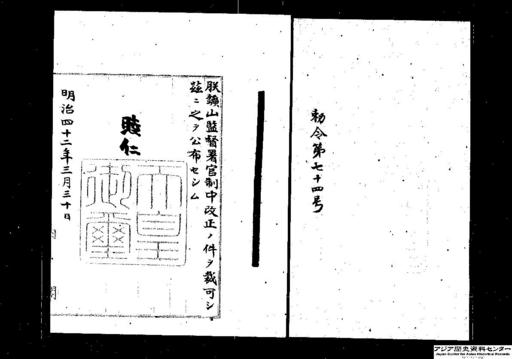 勅令第七十四号
朕鑛山監督署官制中改正ノ件ヲ裁可シ
茲ニ之ヲ公布セシム
睦仁
天皇御璽
明治四十二年三月三十日
内閣
アジア歴史資料センター
Japan Center for Asian Historical Records